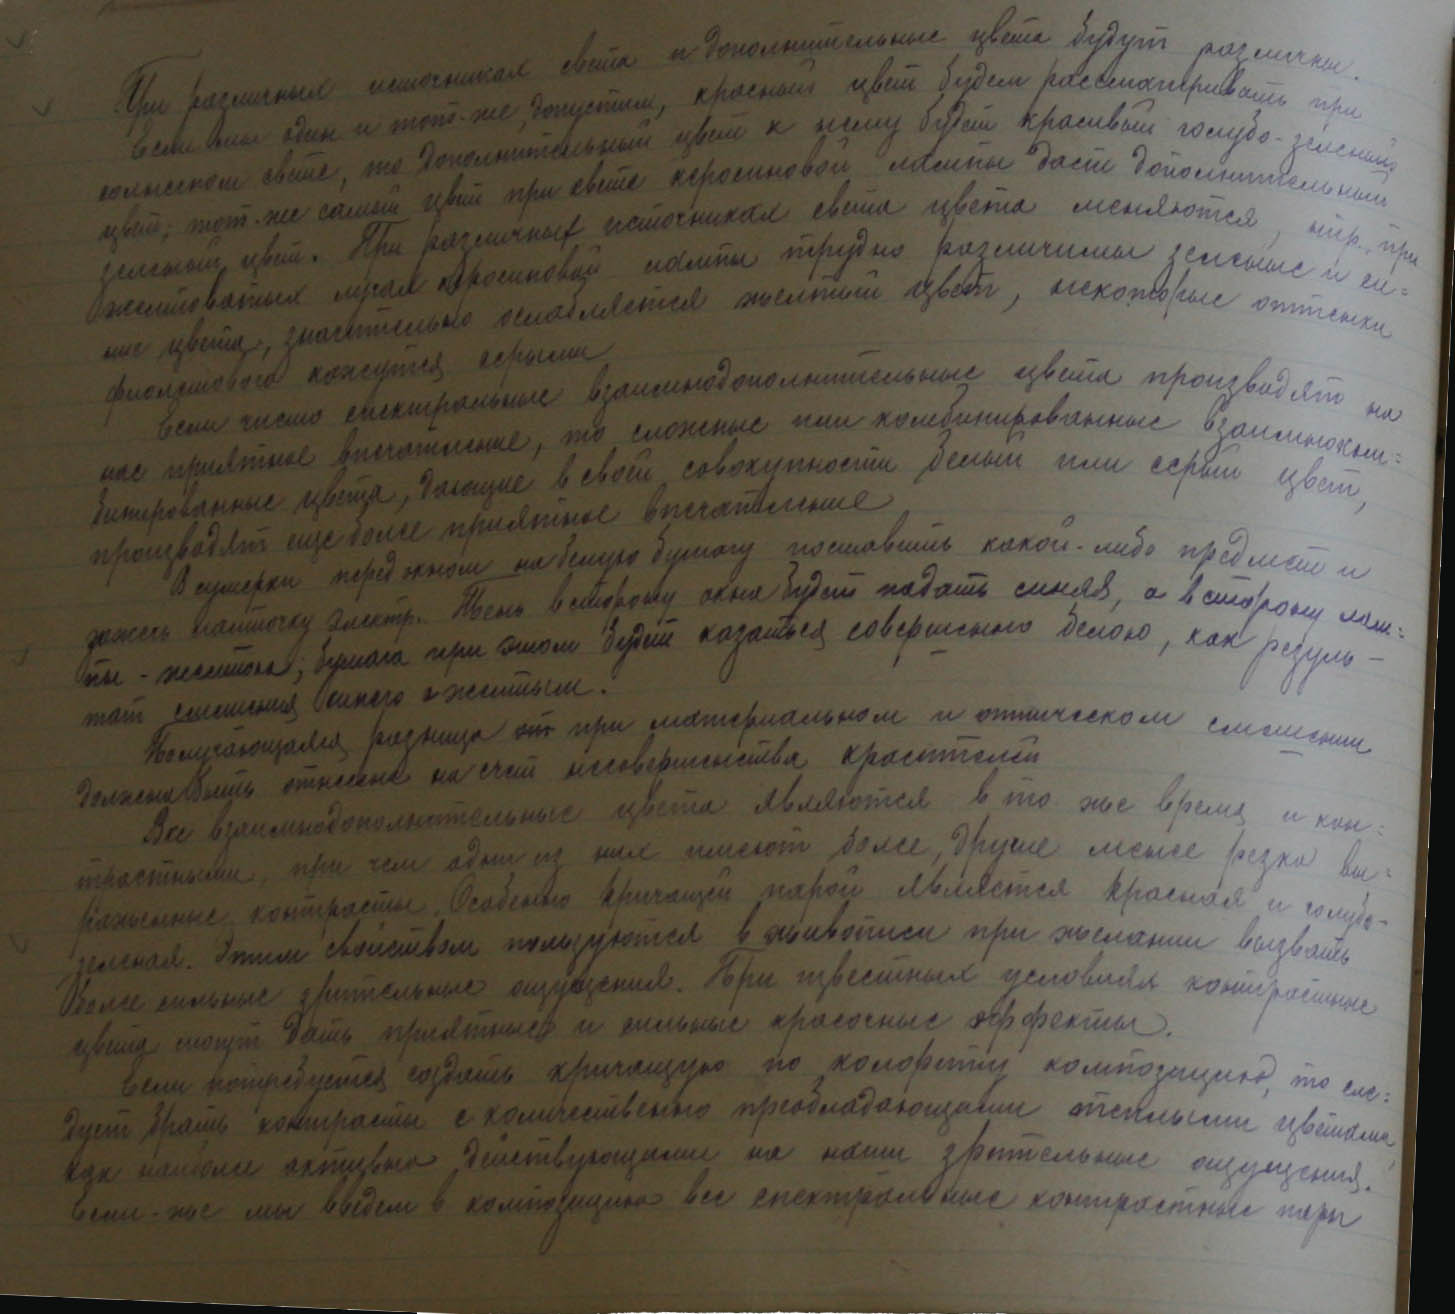 При различных источниках света и дополнительные цвета будут различны.
Если мы один и тот-же, допустим, красный цвет будем рассматривать при
солнечном свете, то дополнительный цвет к нему будет красивый голубо-зеленый
цвет; тот-же самый цвет при свете керосиновой лампы даст дополнительный
зеленый цвет. При различных источниках света цвета меняются, нпр. при
желтоватых лучах керосиновой лампы трудно различимы зеленые и си=
ние цвета, значительно ослабляется желтый цвет, некоторые оттенки
фиолетового кажутся серыми
Если чисто спектральные взаимнодополнительные цвета производят на
нас приятное впечатление, то сложные или комбинированные взаимноком=
бинированные цвета, дающие в своей совокупности белый или серый цвет,
производят еще более приятное впечатление
В сумерки перед окном на белую бумагу поставить какой-либо предмет и
зажечь лампочку электр. Тень в сторону окна будет падать синяя, а в сторону лам=
пы - желтая; бумага при этом будет казаться совершенно белою, как резуль-
тат смешения синего с желтым.
Получающаяся разница от при материальном и оптическом смешении
должна быть отнесена на счет несовершенства красителей
Все взаимнодополнительные цвета являются в то же время и кон=
трастными, при чем одни из них имеют более, другие менее резко вы=
раженные контрасты. Особенно кричащей парой является красная и голубо-
зеленая. Этим свойством пользуются в живописи при желании вызвать
более сильные зрительные ощущения. При известных условиях контрастные
цвета могут дать приятные и сильные красочные эффекты.
Если потребуется создать кричащую по колориту композицию, то сле=
дует брать контрасты с количественно преобладающими теплыми цветами,
как наиболее активно действующими на наши зрительные ощущения.
Если-же мы введем в композицию все спектральные контрастные пары